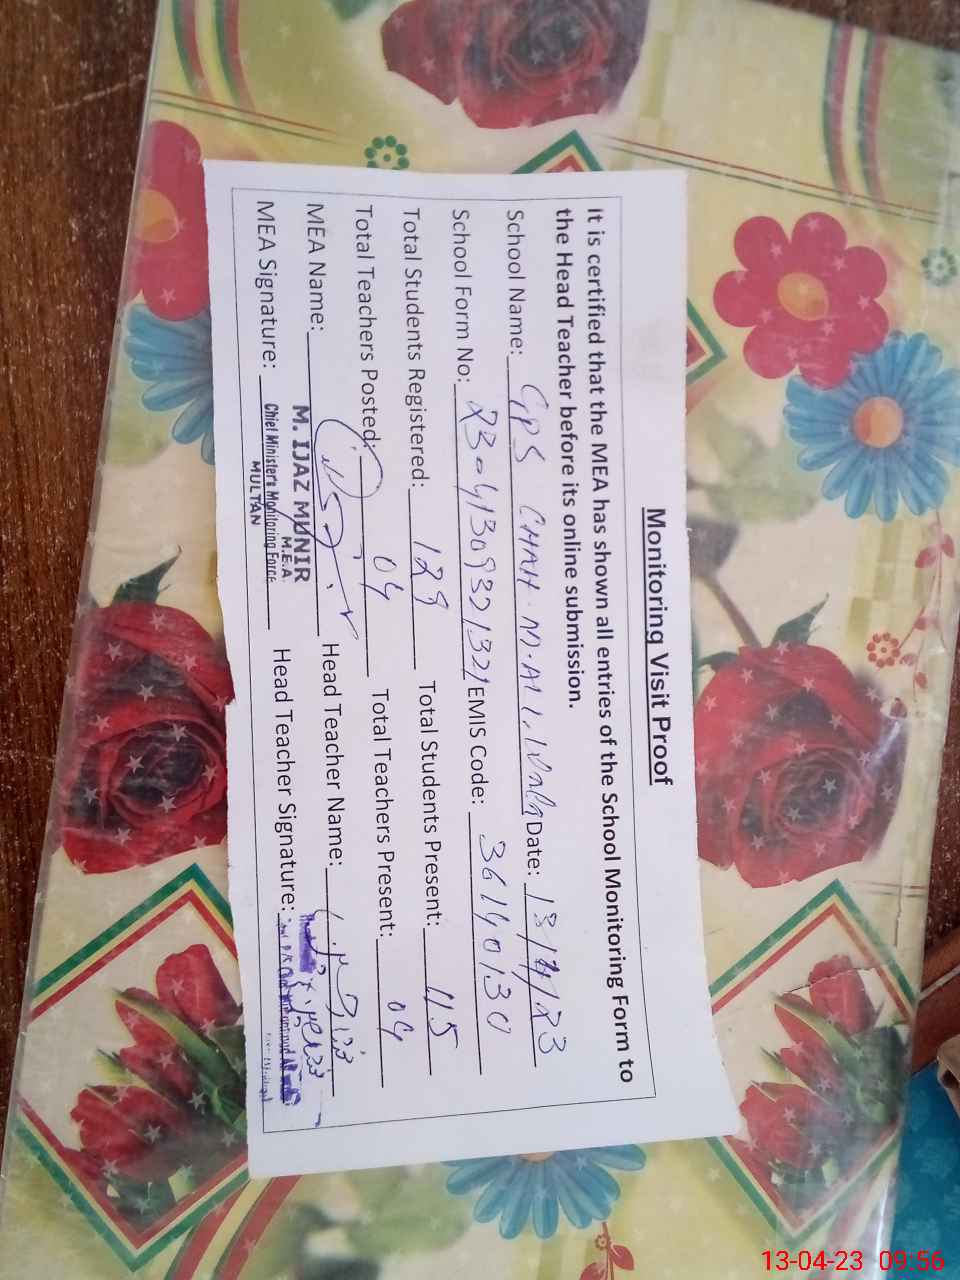 Monitoring Visit Proof
It is certified that the MEA has shown all entries of the School Monitoring Form to
the Head Teacher before its online submission.
School Name: GPS CHAH M.ALI.Wala Date: 13/4/23
School Form No: EMIS Code: 36140130
Total Students Registered: 128 Total Students Present: 115
Total Teachers Posted: 04 Total Teachers Present: 04
MEA Name: Head Teacher Name:
M. IJAZ MUNIR
M.E.A
MEA Signature: Head Teacher Signature:
Chief Minister's Monitoring Force
MULTAN
13-04-23 09:56